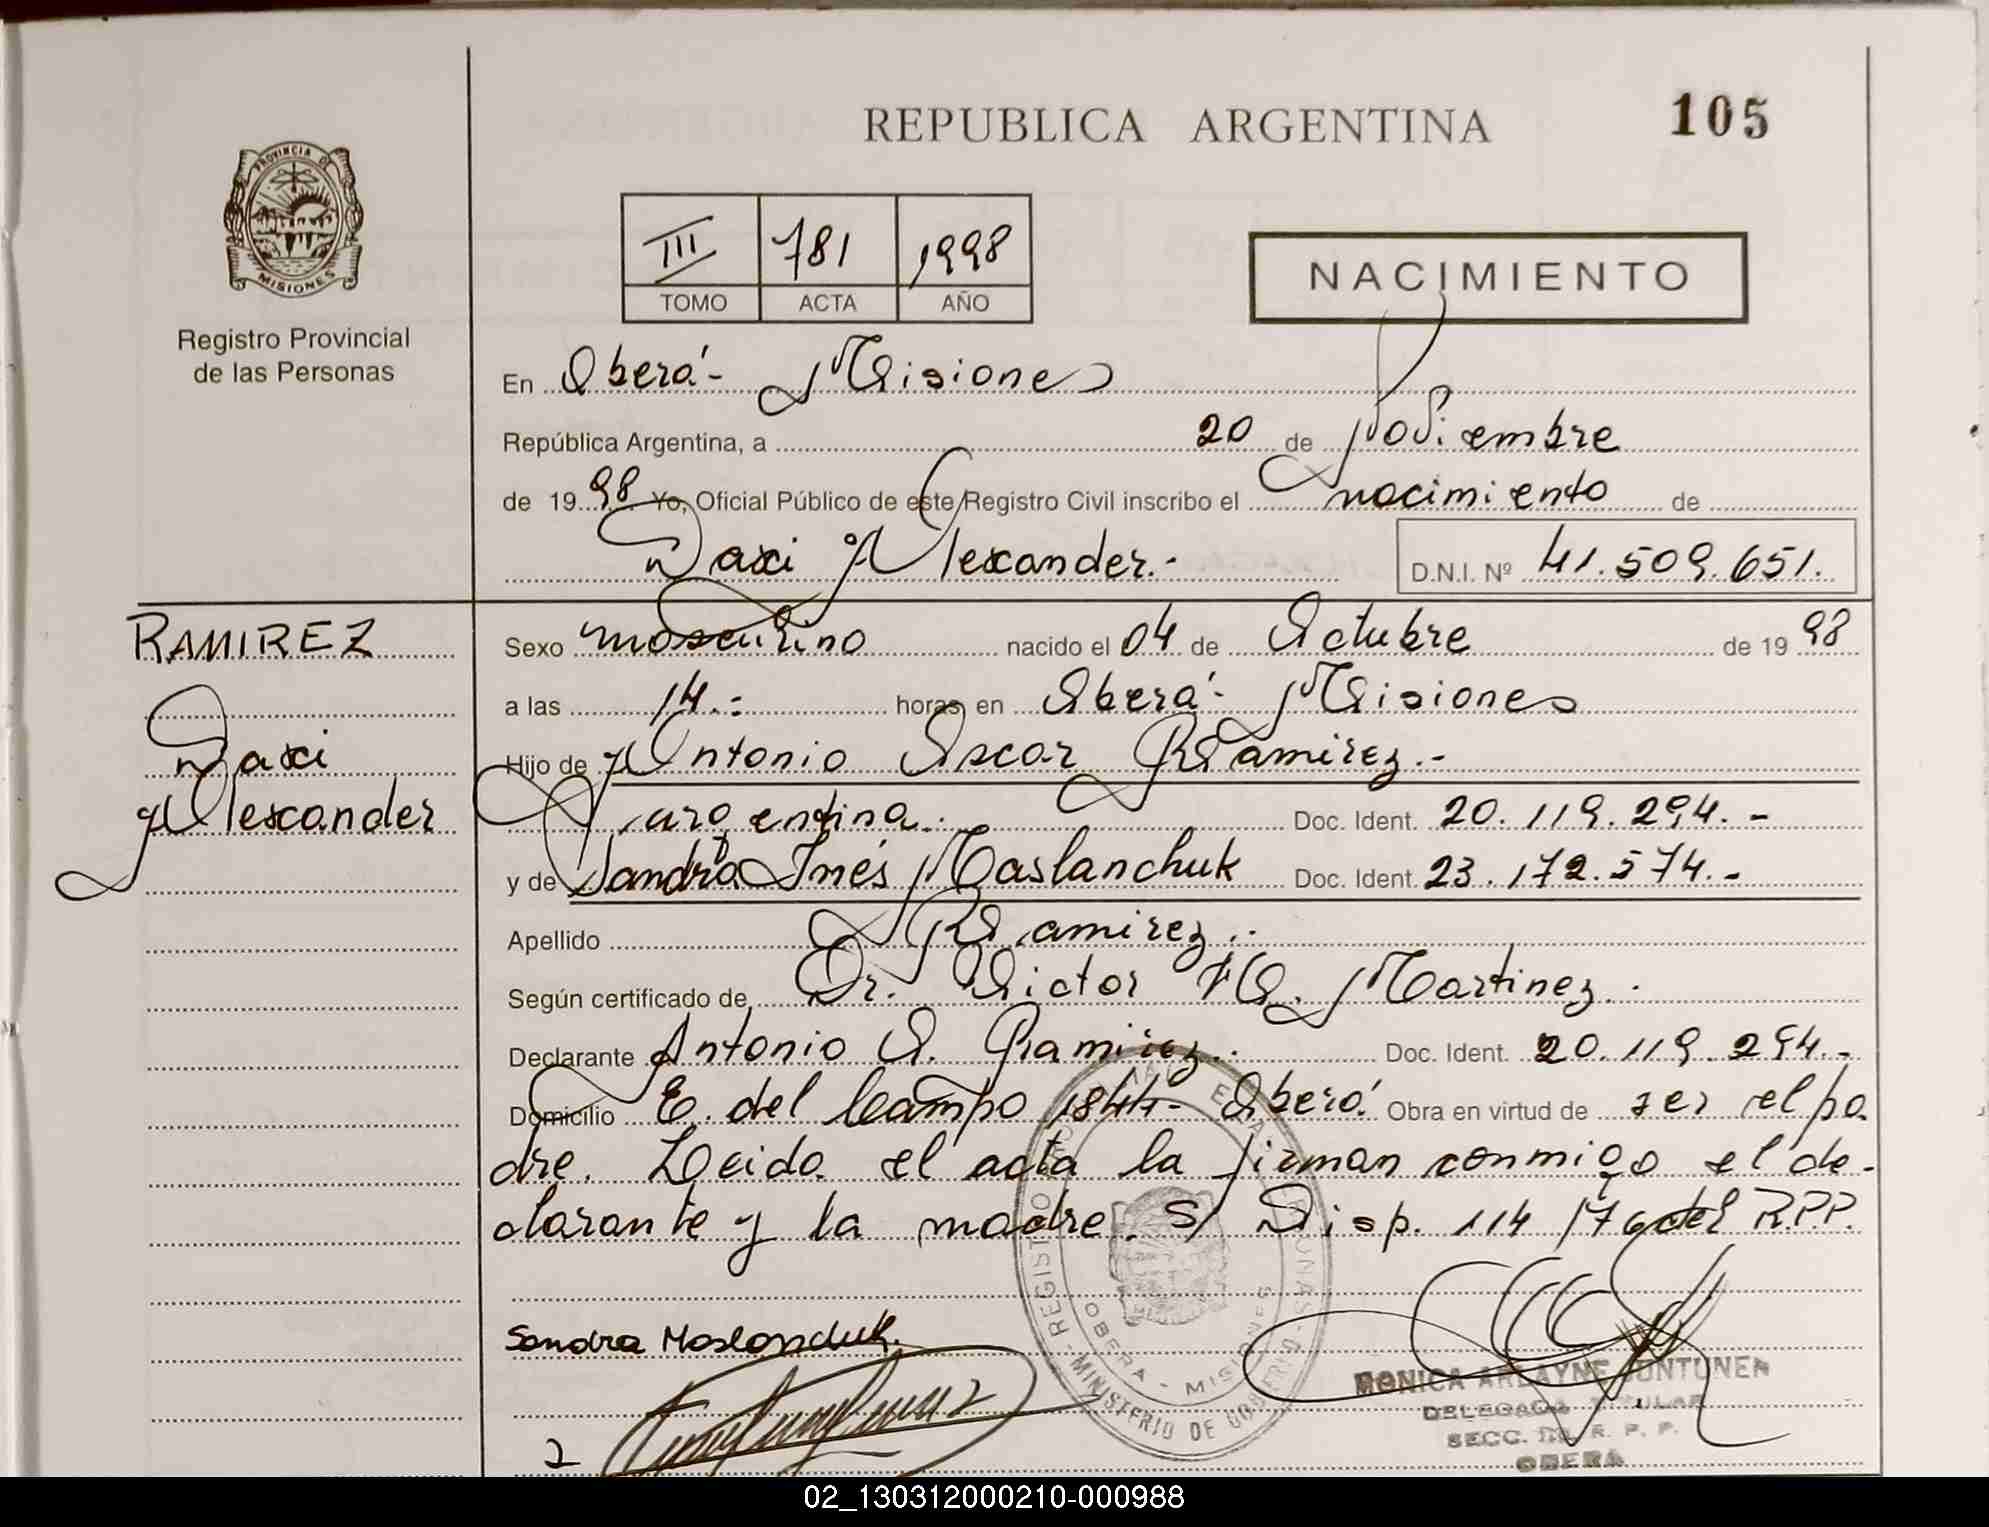 REPUBLICA ARGENTINA
105
PROVINCIA DE
MISIONES
Registro Provincial
de las Personas
III 781 1998
TOMO ACTA AÑO
NACIMIENTO
En Oberá - Misiones
República Argentina, a 20 de Noviembre
de 1998 Yo, Oficial Público de este Registro Civil inscribo el nacimiento de
Daxi Alexander.-
D.N.I. Nº 41.509.651.
RAMIREZ
Daxi
Alexander
Sexo masculino nacido el 04 de Octubre de 1998
a las 14.- horas en Oberá - Misiones
Hijo de Antonio Oscar Ramirez.-
argentina. Doc. Ident. 20.119.294.-
y de Sandra Inés Maslanchuk Doc. Ident. 23.172.574.-
Apellido Ramirez.-
Según certificado de Dr. Victor Martinez.
Declarante Antonio O. Ramirez.- Doc. Ident. 20.119.294.-
Domicilio E. del Campo 1844- Oberá. Obra en virtud de ser el pa
dre. Leida el acta la firman conmigo el de-
clarante y la madre. S/ Disp. 114/76 del R.P.P.
Sandra Maslanchuk.
REGISTRO
OBERA - MISIONES
MINISTERIO DE GOBIERNO
MONICA ARLAYNE JUNTUNEN
DELEGADA TITULAR
SECC. R. P. P.
OBERA
02_130312000210-000988